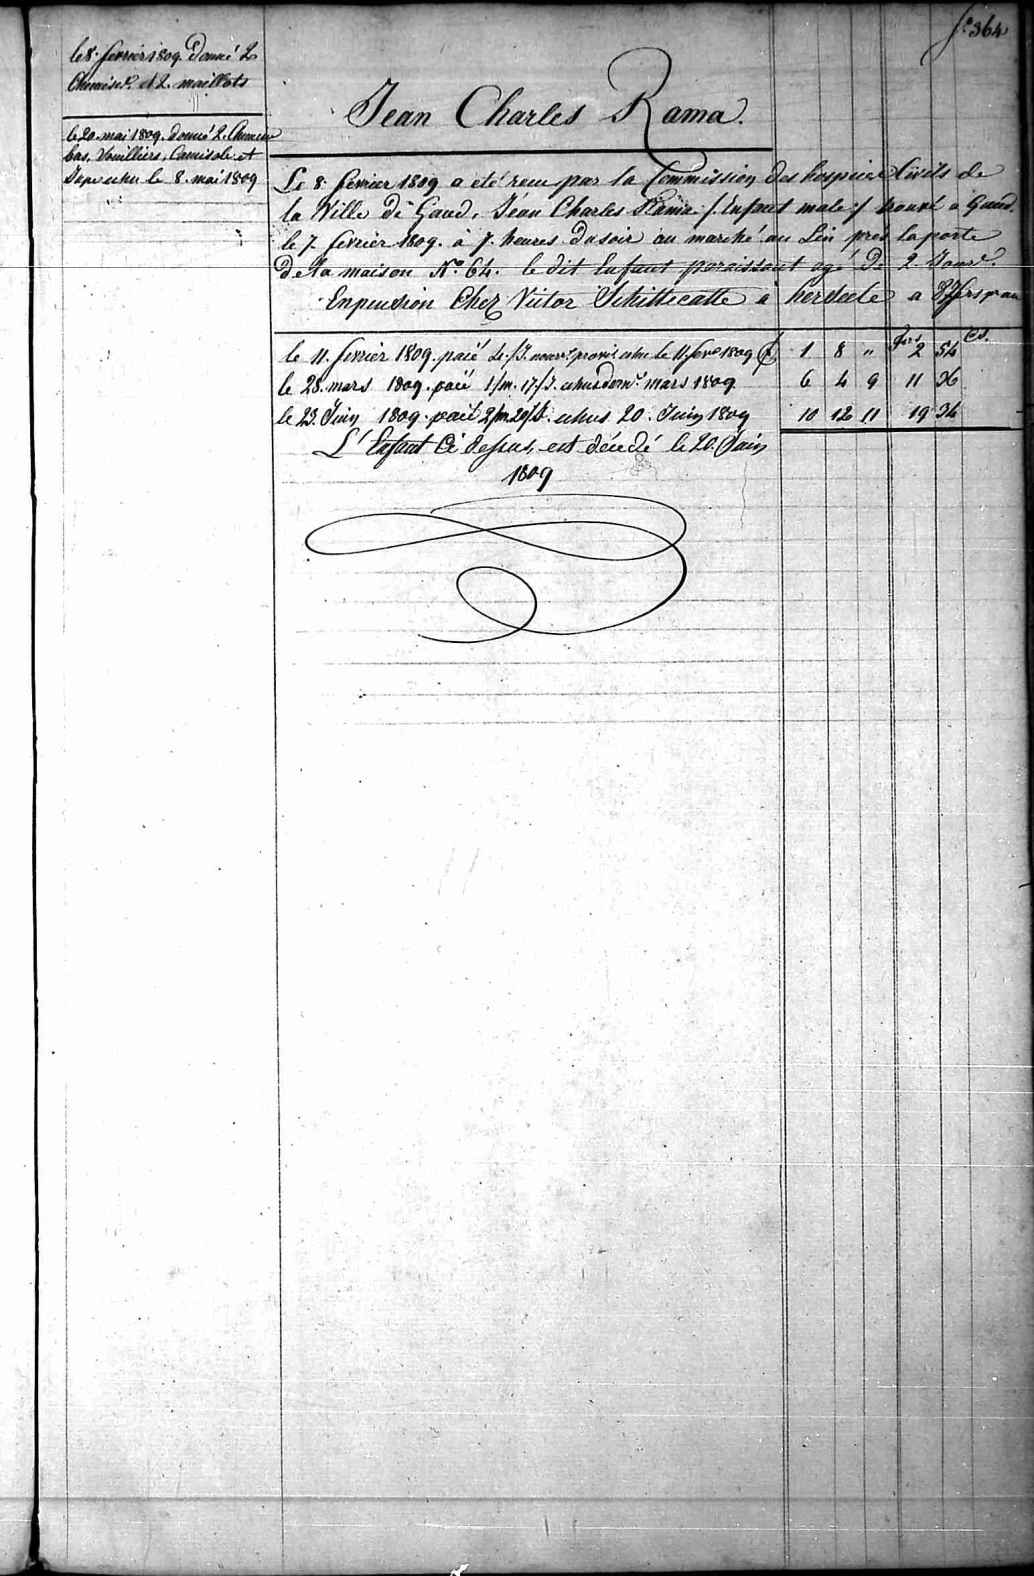 fo. 364
le 8. fevrier 1809. donné 2
Chemises. et 2. maillots
le 20. mai 1809. donné 2. Chemise
bas, Souilliers, Camisole et
Jupe echu le 8. mai 1809
Jean Charles Rama.
Le 8. fevrier 1809 a eté recu par la Commission des hospices Civils de
la Ville de Gand, Jean Charles Rama /: Enfant male :/ trouvé a Gand,
le 7. fevrier 1809. à 7. heures du soir au marché au Lin près la porte
de la maison No. 64. le dit Enfant paraissant agé de 2. Jours.
En pension Chez Victor Schittecatte à herseele a frs par an
frs cs.
le 11. fevrier 1809. paié echu le 11. fevr 1809 1 8 " 2 54
le 28. mars 1809. paié 1/m. 17/J. echus mars 1809 6 4 9 11 36
le 23. Juin 1809. paié 2/m. 29/J. echus 20. Juin 1809 10 12 11 19 34
L'Enfant Ci dessus, est décedé le 20. Juin
1809